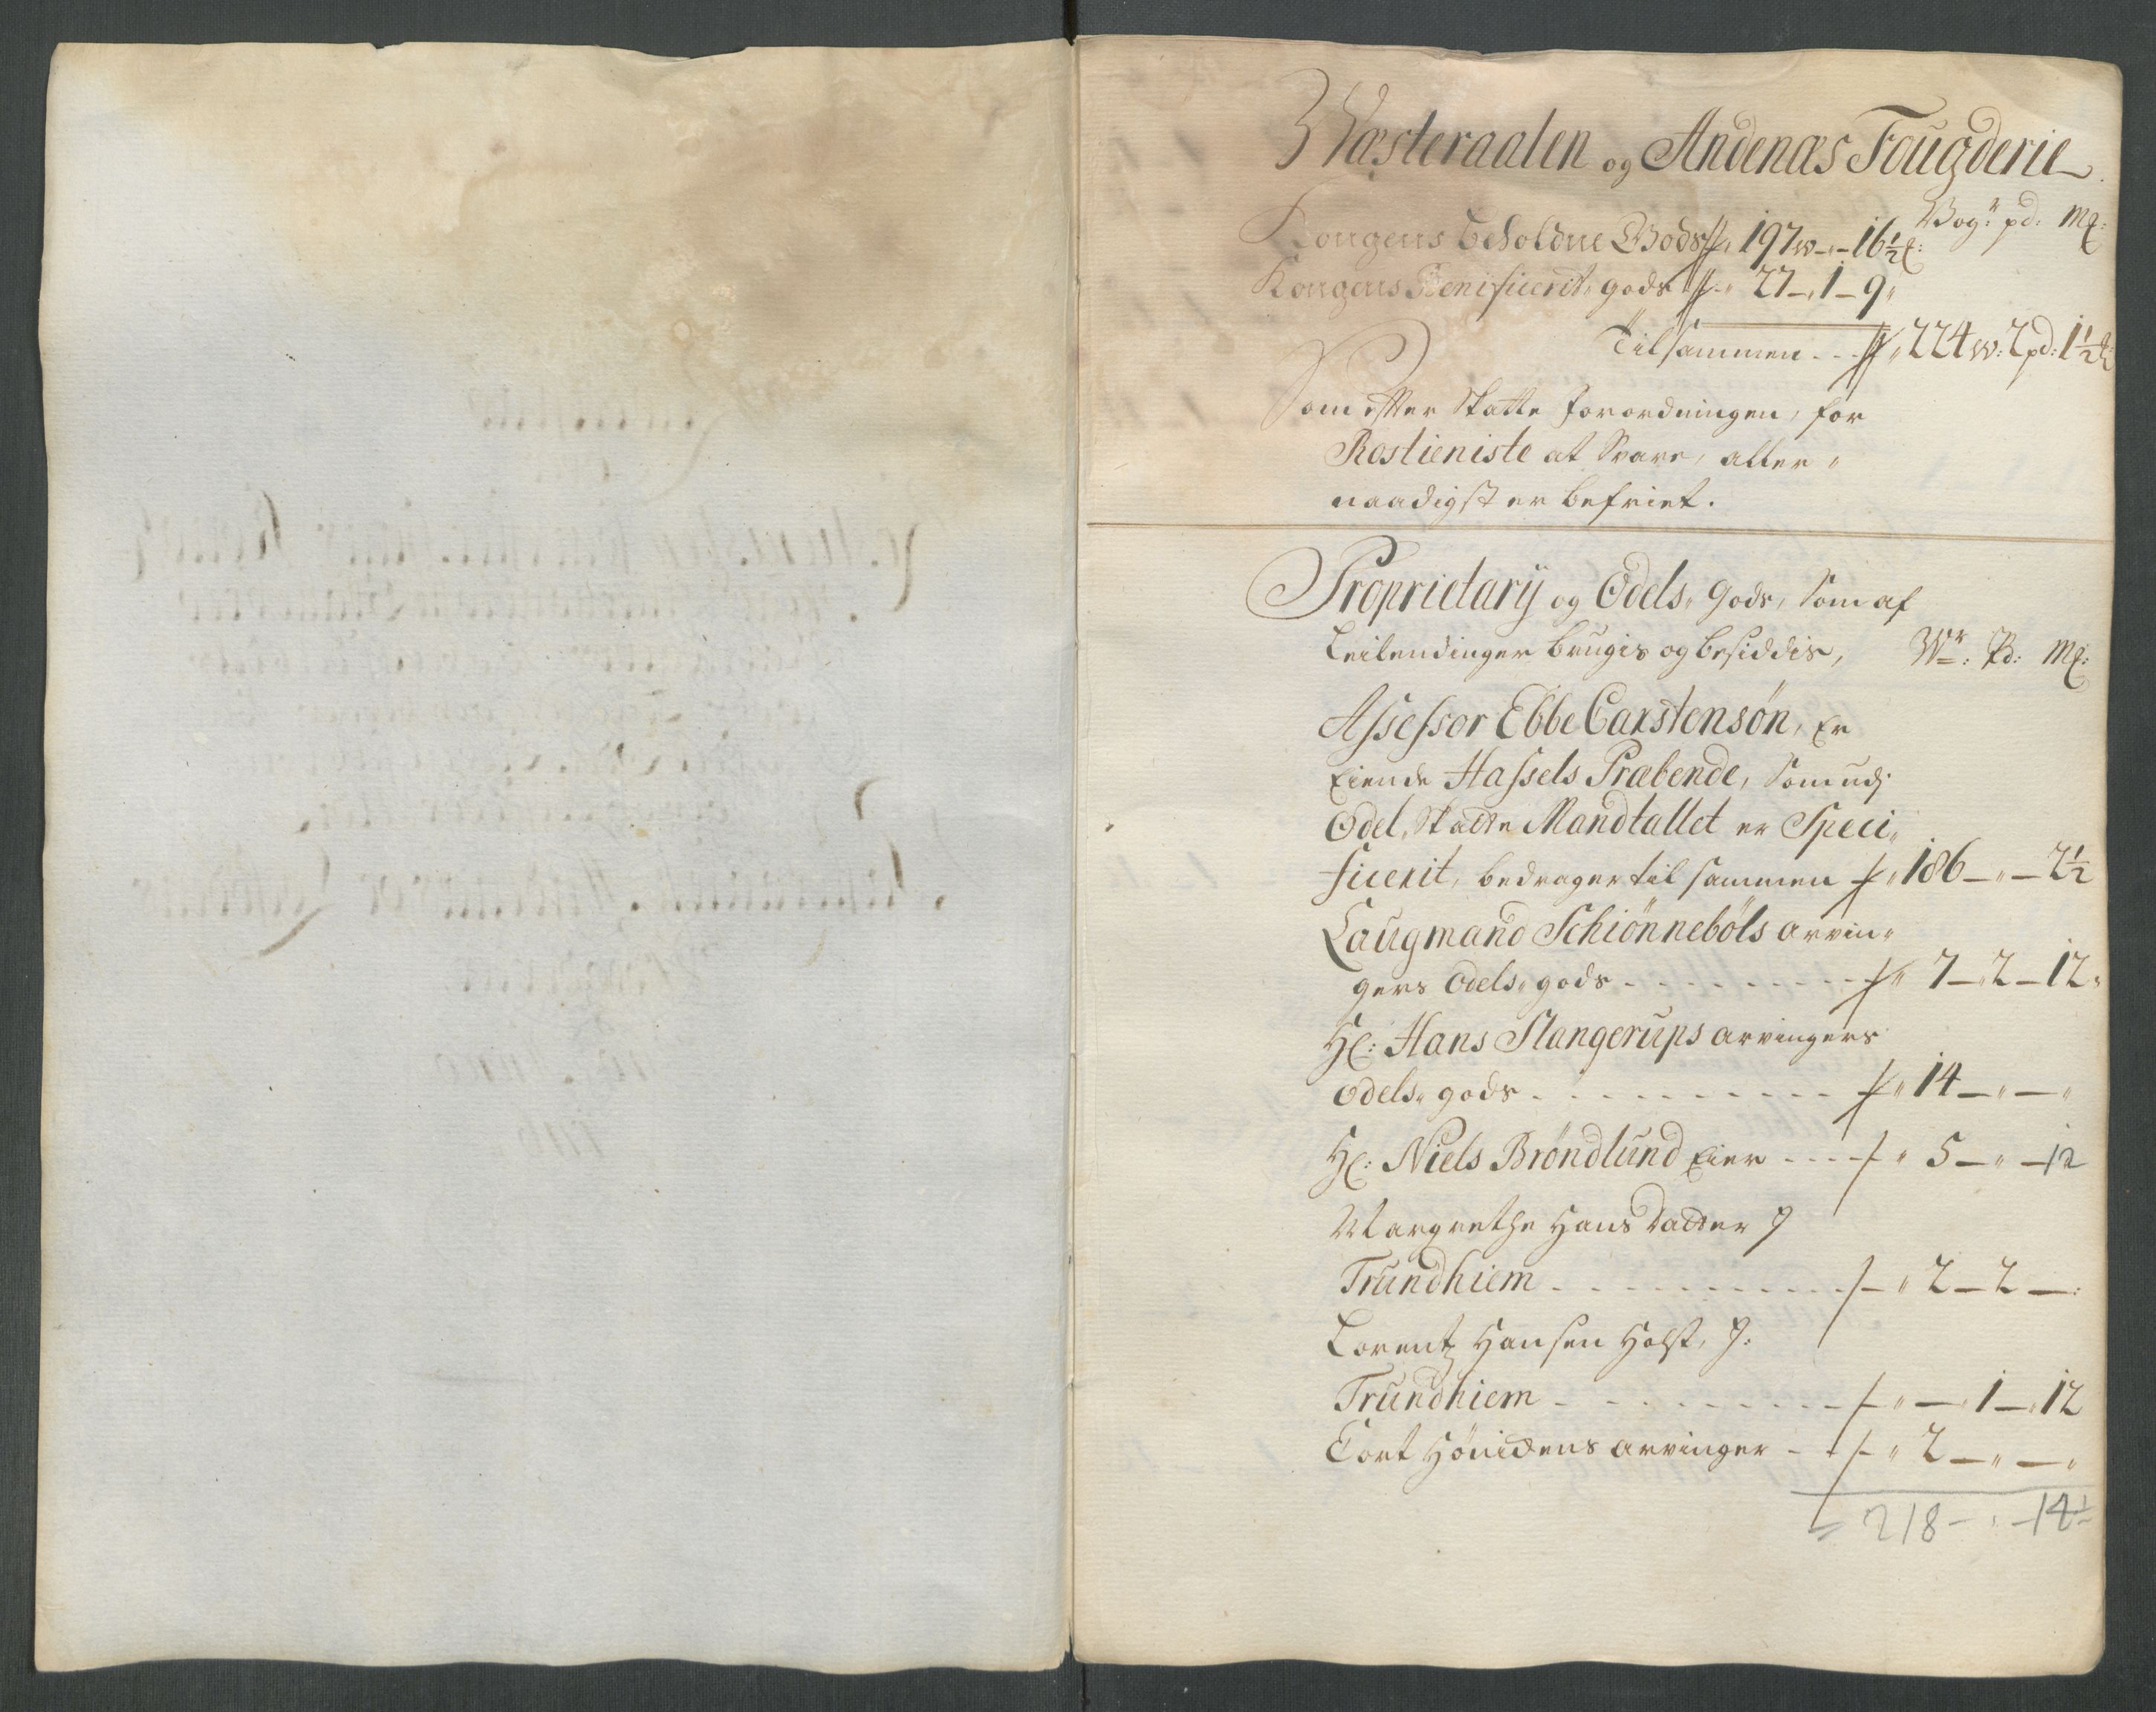 Wæsteraalen og Andenæs Fougderie
Wog.r pd: Mk:
Kongens beholdne Gods 197 w - 16½
Kongens Benificerit gods 27 - 1 - 9
Tilsammen - - 224 w: 2 pd: 1½
Som effter Skatte forordningen, for
Rostieniste at Svare, aller
naadigst er befriet.
Proprietarij og Odels Gods, Som af
Leilendinger brugis og besiddis, Wr: Pd: Mk:
Assessor Ebbe Carstensøn, Er
Eiende Hassels Præbende, Som udj
Odel Skatte Mandtallet er Speci
ficerit, bedrager til sammen 186 - " - 2½
Laugmand Schiønnebøls arvin
gers Odels gods - - - 7 - 2 - 12
Hr: Hans Slangerups arvingers
Odels gods - - - 14 - " - "
Hr: Niels Brøndlund Eier - - - 5 - " - 12
Margrethe Hans Datter J
Trundhiem - - - 2 - 2 -
Lorentz Hansen Holst, J:
Trundhiem - - - " - 1 - 12
Cort Høniches arvinger - - 2 - " - "
218 - " - 14½